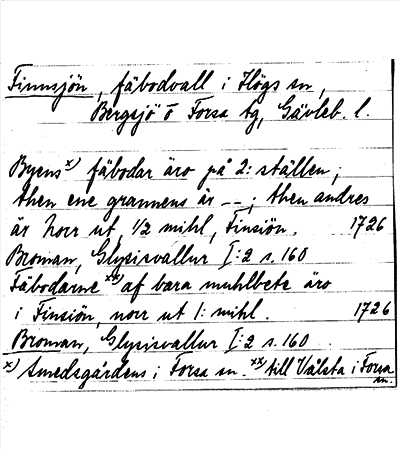 Finnsjön, fäbodvall i Högs sn,
Bergsjö o Forsa tg, Gävleb. l.
Byens x) fäbodar äro på 2: ställen;
then ene grannens är – –; then andres
är norr ut 1/2 mihl, Finsiön. 1726
Broman, Glysisvallur I:2 s. 160
Fäbodarne xx) af bara muhlbete äro
i Finsiön, norr ut 1: mihl. 1726
Broman, Glysisvallur I:2 s. 160
x) Smedsgårdens i Forsa sn. xx) till Vålsta i Forsa
sn.